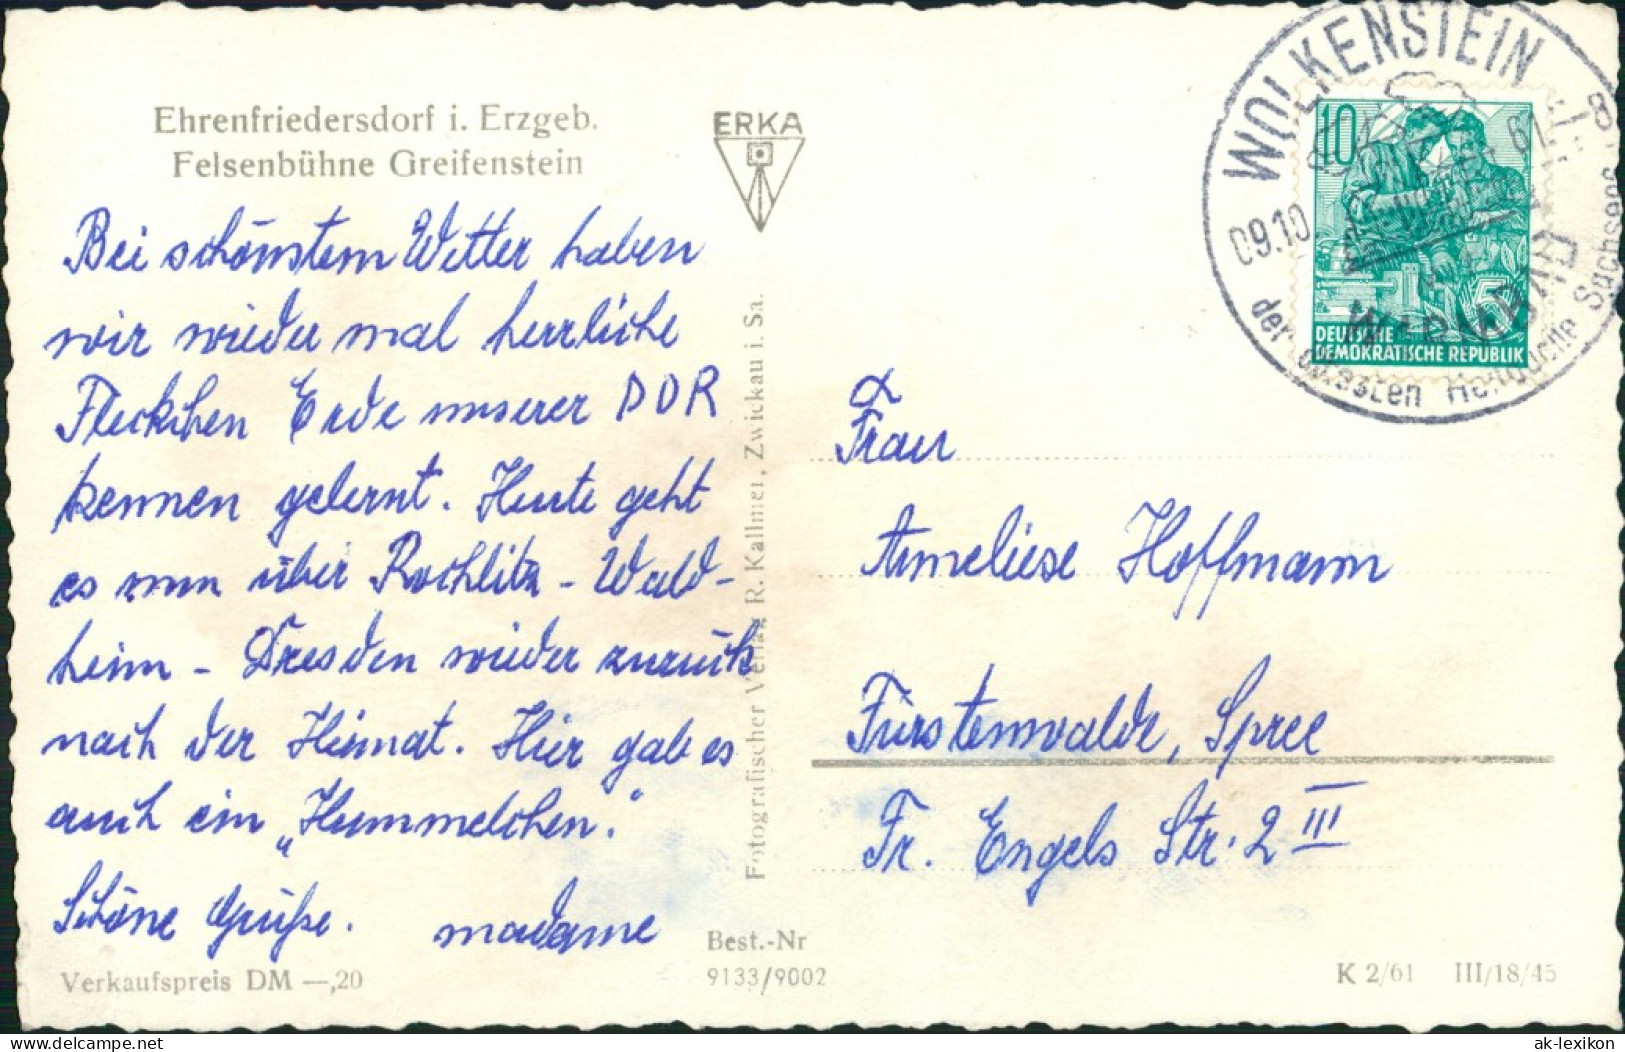 Ehrenfriedersdorf i. Erzgeb.
Felsenbühne Greifenstein
ERKA
Bei schönstem Wetter haben
wir wieder mal herrliche
Fleckchen Erde unserer DDR
kennen gelernt. Heute geht
es nun über Rochlitz - Wald-
heim - Dresden wieder zurück
nach der Heimat. Hier gab es
auch ein „Hummelchen".
Schöne Grüße.
Verkaufspreis DM —,20
Fotografischer Verlag R. Kallmer, Zwickau i. Sa.
Best.-Nr
9133/9002
WOLKENSTEIN
09.10
61
WARMBAD
der ältesten Heilquelle Sachsens
10
5
DEUTSCHE
DEMOKRATISCHE REPUBLIK
Frau
Anneliese Hoffmann
Fürstenwalde, Spree
Fr. Engels Str. 2 III
K 2/61 III/18/45
www.delcampe.net
ak-lexikon